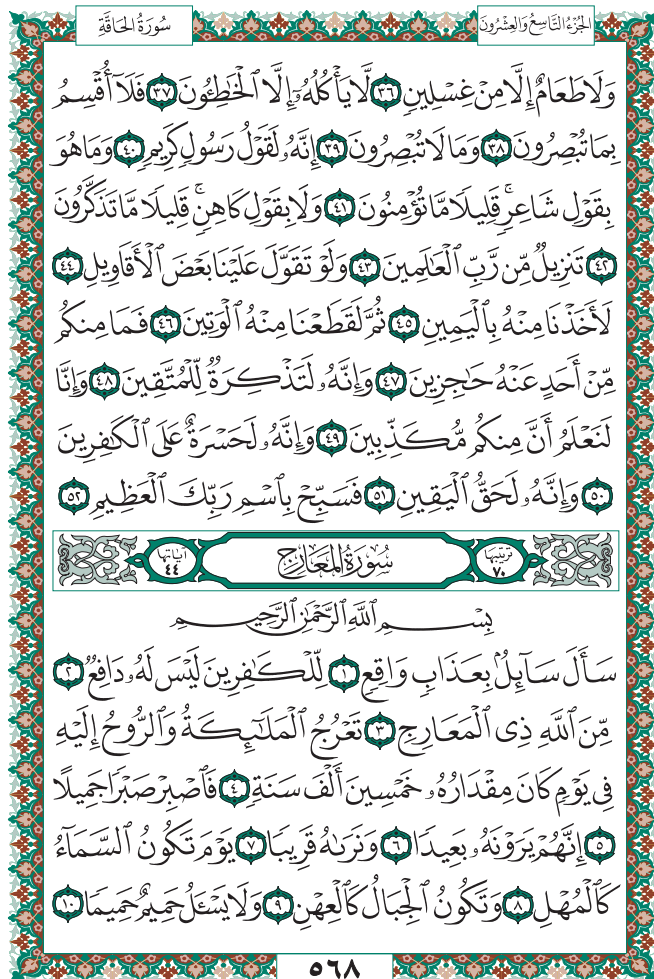 الجُزْءُ التَّاسِعُ وَالعِشْرُونَ
سُورَةُ الحَاقَّةِ
وَلَا طَعَامٌ إِلَّا مِنْ غِسْلِينٍ ٣٦ لَّا يَأْكُلُهُۥٓ إِلَّا ٱلْخَٰطِـُٔونَ ٣٧ فَلَآ أُقْسِمُ
بِمَا تُبْصِرُونَ ٣٨ وَمَا لَا تُبْصِرُونَ ٣٩ إِنَّهُۥ لَقَوْلُ رَسُولٍ كَرِيمٍ ٤٠ وَمَا هُوَ
بِقَوْلِ شَاعِرٍۚ قَلِيلًا مَّا تُؤْمِنُونَ ٤١ وَلَا بِقَوْلِ كَاهِنٍۚ قَلِيلًا مَّا تَذَكَّرُونَ
٤٢ تَنزِيلٌ مِّن رَّبِّ ٱلْعَٰلَمِينَ ٤٣ وَلَوْ تَقَوَّلَ عَلَيْنَا بَعْضَ ٱلْأَقَاوِيلِ ٤٤
لَأَخَذْنَا مِنْهُ بِٱلْيَمِينِ ٤٥ ثُمَّ لَقَطَعْنَا مِنْهُ ٱلْوَتِينَ ٤٦ فَمَا مِنكُم
مِّنْ أَحَدٍ عَنْهُ حَٰجِزِينَ ٤٧ وَإِنَّهُۥ لَتَذْكِرَةٌ لِّلْمُتَّقِينَ ٤٨ وَإِنَّا
لَنَعْلَمُ أَنَّ مِنكُم مُّكَذِّبِينَ ٤٩ وَإِنَّهُۥ لَحَسْرَةٌ عَلَى ٱلْكَٰفِرِينَ
٥٠ وَإِنَّهُۥ لَحَقُّ ٱلْيَقِينِ ٥١ فَسَبِّحْ بِٱسْمِ رَبِّكَ ٱلْعَظِيمِ ٥٢
تَرتِيبُهَا ٧٠ سُورَةُ المَعَارِجِ آيَاتُهَا ٤٤
بِسْمِ ٱللَّهِ ٱلرَّحْمَٰنِ ٱلرَّحِيمِ
سَأَلَ سَآئِلٌۢ بِعَذَابٍ وَاقِعٍ ١ لِّلْكَٰفِرِينَ لَيْسَ لَهُۥ دَافِعٌ ٢
مِّنَ ٱللَّهِ ذِى ٱلْمَعَارِجِ ٣ تَعْرُجُ ٱلْمَلَٰٓئِكَةُ وَٱلرُّوحُ إِلَيْهِ
فِى يَوْمٍ كَانَ مِقْدَارُهُۥ خَمْسِينَ أَلْفَ سَنَةٍ ٤ فَٱصْبِرْ صَبْرًا جَمِيلًا
٥ إِنَّهُمْ يَرَوْنَهُۥ بَعِيدًا ٦ وَنَرَىٰهُ قَرِيبًا ٧ يَوْمَ تَكُونُ ٱلسَّمَآءُ
كَٱلْمُهْلِ ٨ وَتَكُونُ ٱلْجِبَالُ كَٱلْعِهْنِ ٩ وَلَا يَسْـَٔلُ حَمِيمٌ حَمِيمًا ١٠
٥٦٨